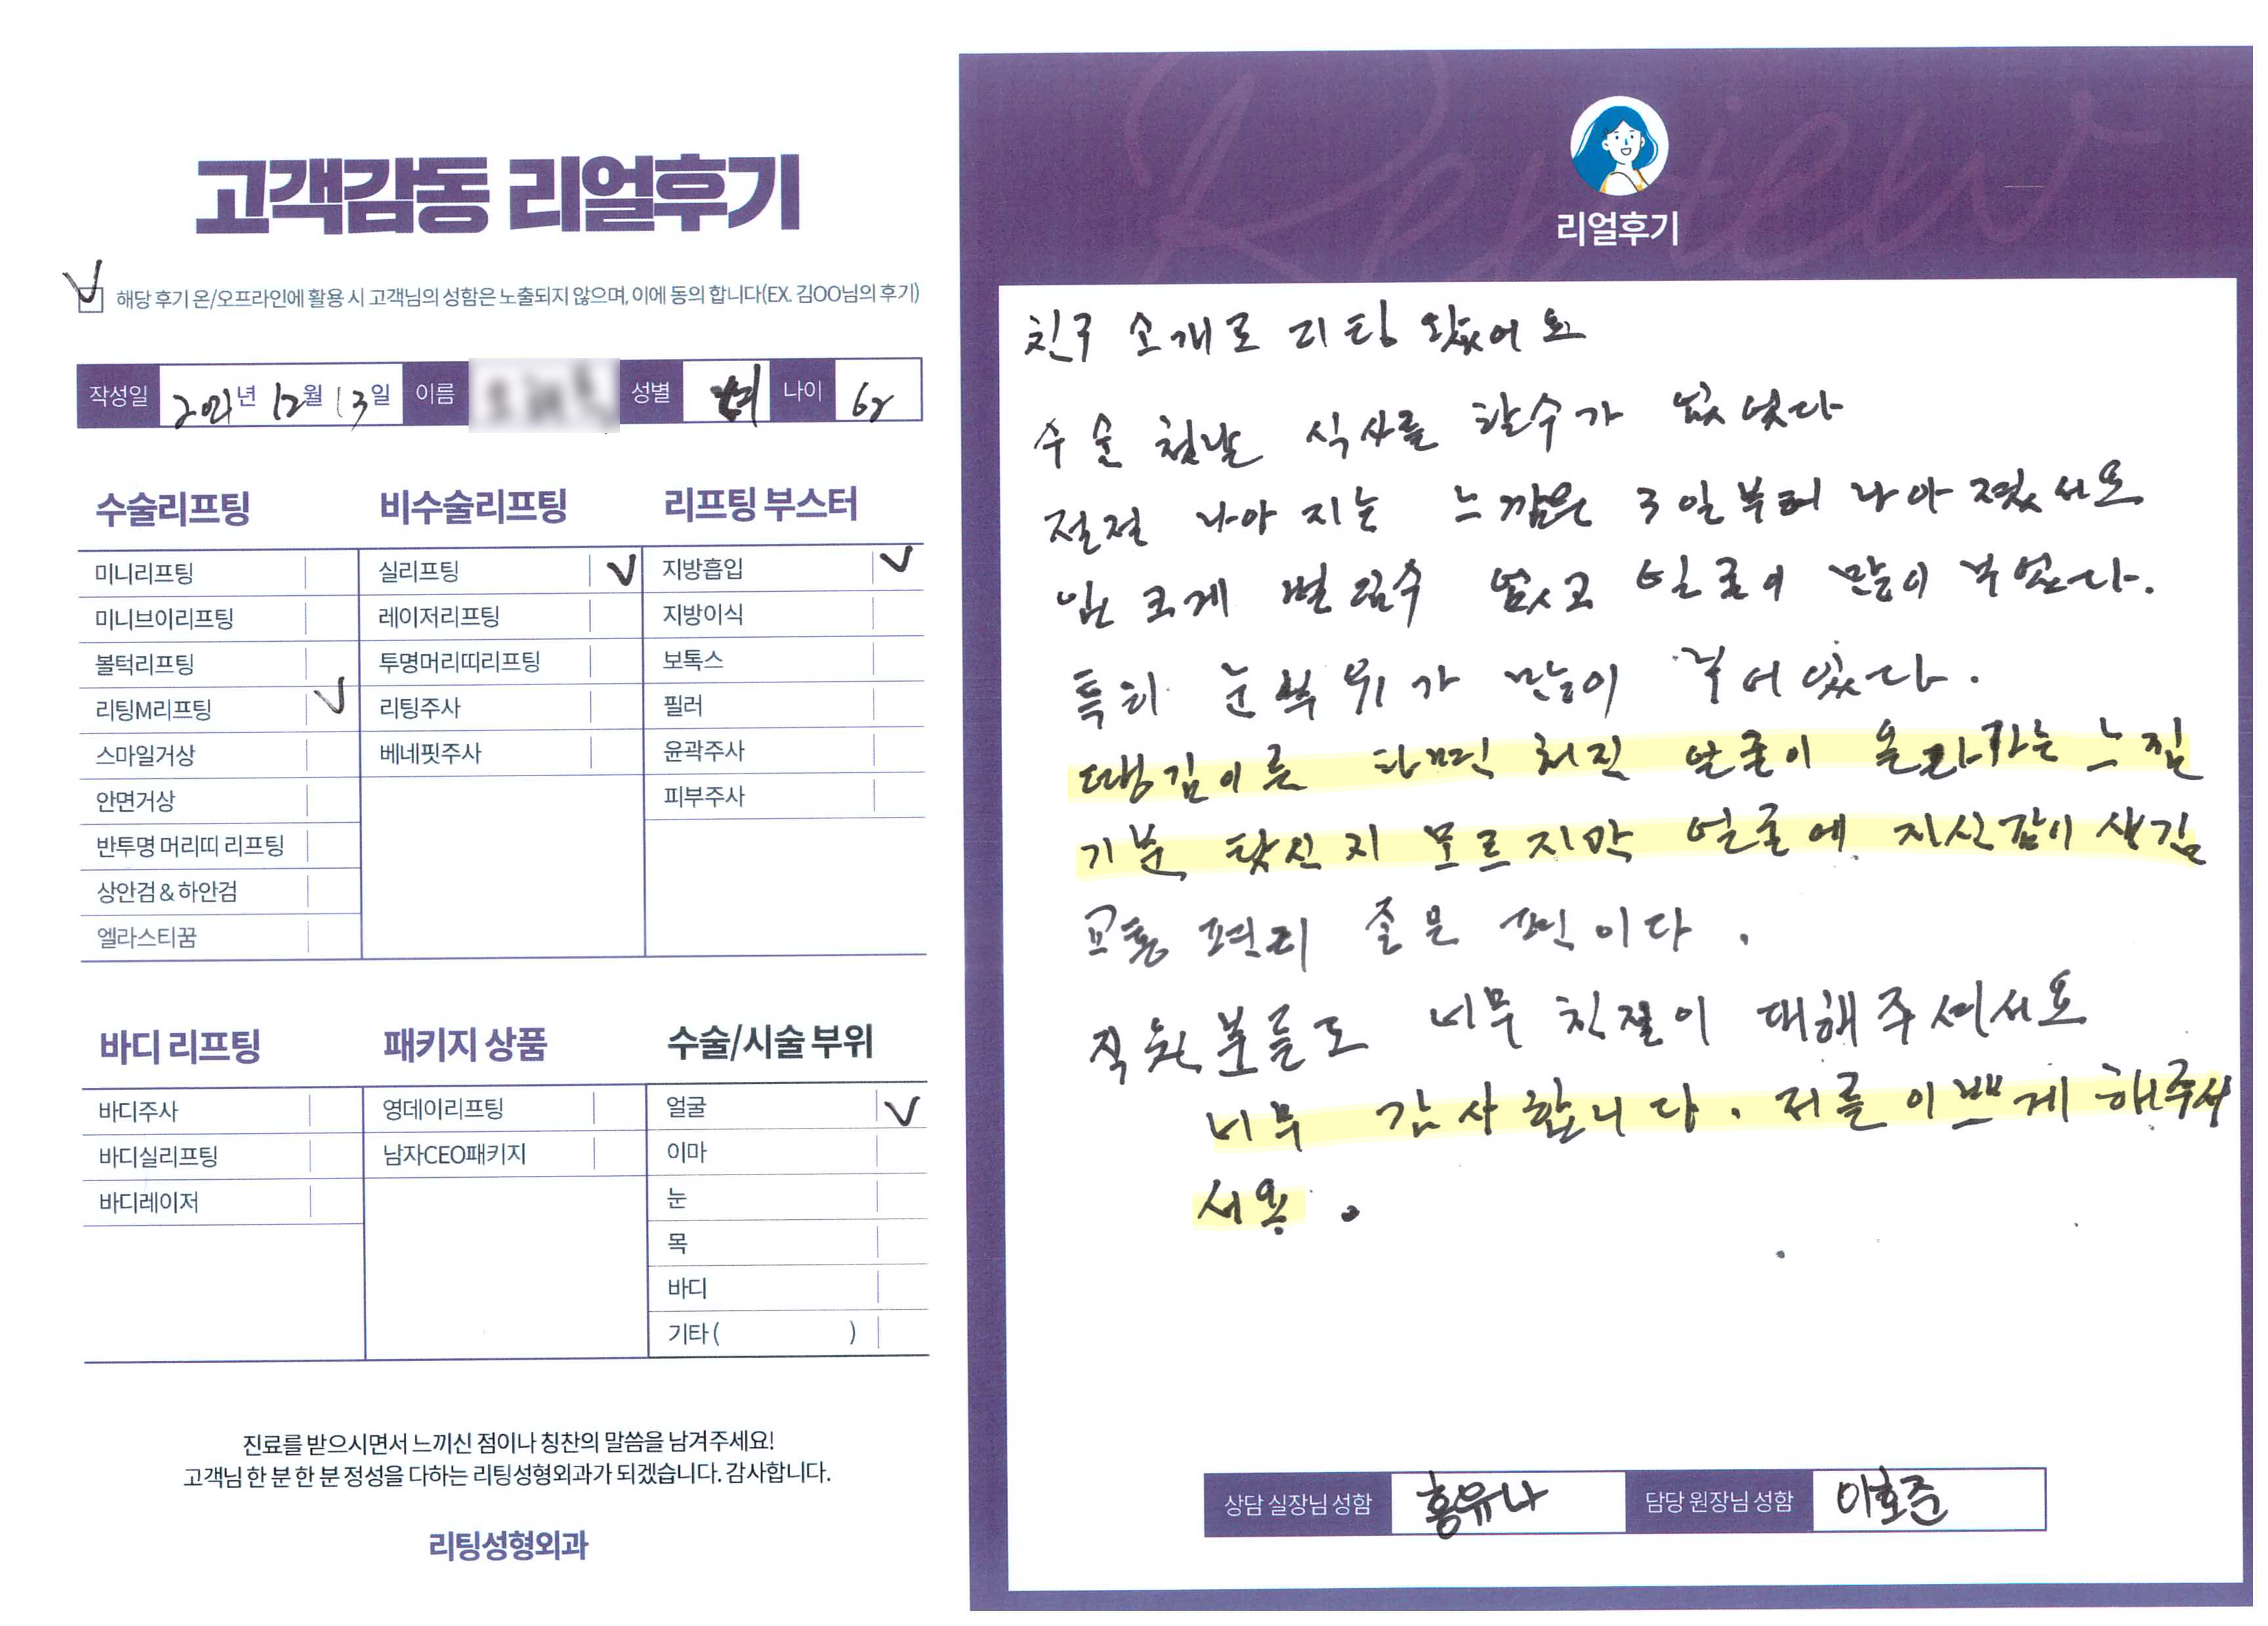 고객감동 리얼후기
해당 후기 온/오프라인에 활용 시 고객님의 성함은 노출되지 않으며, 이에 동의 합니다(EX. 김OO님의 후기)
작성일 2021년 12월 13일 이름 성별 여 나이 62
수술리프팅 비수술리프팅 리프팅 부스터
미니리프팅 실리프팅 지방흡입
미니브이리프팅 레이저리프팅 지방이식
볼턱리프팅 투명머리띠리프팅 보톡스
리팅M리프팅 리팅주사 필러
스마일거상 베네핏주사 윤곽주사
안면거상 피부주사
반투명 머리띠 리프팅
상안검 & 하안검
엘라스티꿈
바디 리프팅 패키지 상품 수술/시술 부위
바디주사 영데이리프팅 얼굴
바디실리프팅 남자CEO패키지 이마
바디레이저 눈
목
바디
기타 ( )
진료를 받으시면서 느끼신 점이나 칭찬의 말씀을 남겨주세요!
고객님 한 분 한 분 정성을 다하는 리팅성형외과가 되겠습니다. 감사합니다.
리팅성형외과
Review
리얼후기
친구 소개로 리팅 왔어요
수술 첫날 식사를 할수가 없었다
절절 나아 지는 느낌은 3일부터 나아 졌서요
입 크게 벌일수 없고 얼굴이 많이 부었다.
특히 눈부위가 많이 부어있다.
땡김이를 하면 처진 얼굴이 올라가는 느낌
기분 탓인지 모르지만 얼굴에 자신감이 생김
교통 편리 좋은 편이다.
직원분들도 너무 친절이 대해주셔서요
너무 감사합니다. 저를 이쁘게 해주셔
서용.
상담 실장님 성함 홍유나 담당 원장님 성함 이호준